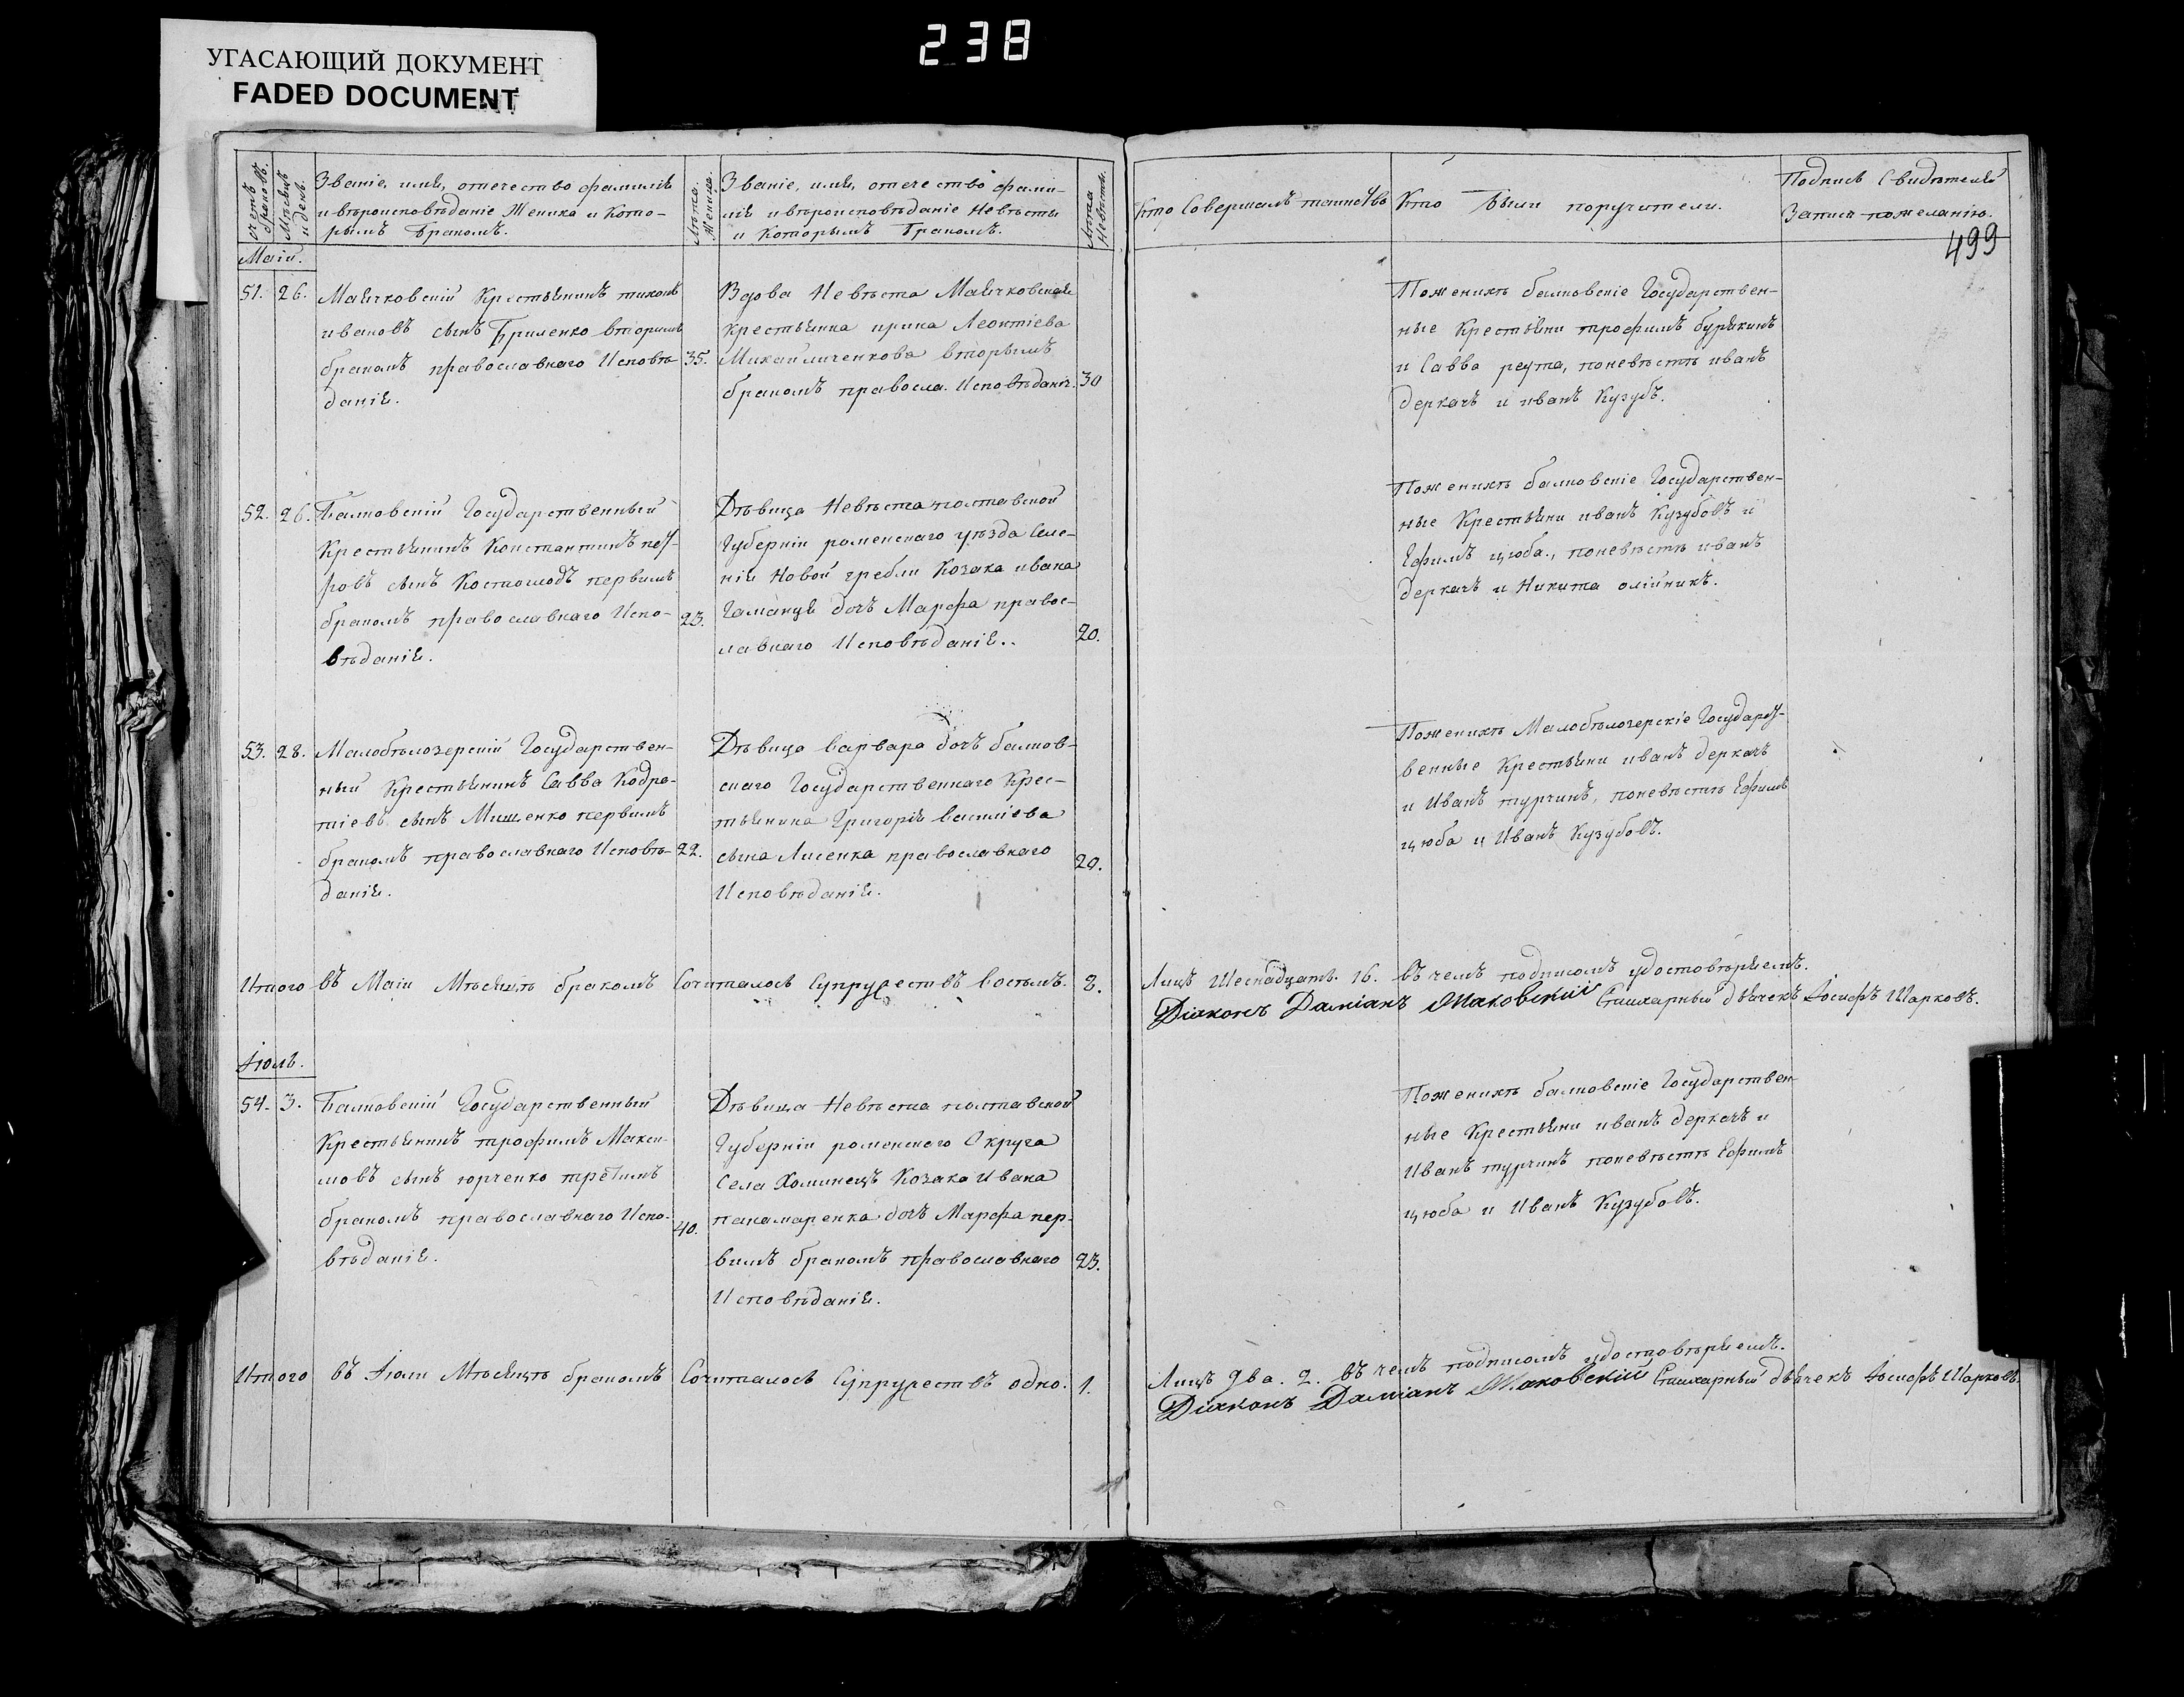 238
УГАСАЮЩИЙ ДОКУМЕНТ
FADED DOCUMENT
счетъ браковъ.
Мѣсяцъ и день.
Званіе, имя, отечество фамилія
и вѣроисповѣданіе Жениха и Кото-
рымъ бракомъ.
Лѣта Жениха.
Званіе, имя, отечество фами-
лія и вѣроисповѣданіе Невѣсты
и Которымъ бракомъ.
Лѣта Невѣсты.
Кто Совершалъ таинство
Кто были поручители.
Подпись Свидѣтелей
Записи по желанію.
499
Маіи.
51. 26. Маячковскій Крестьянинъ тихонъ
ивановъ сынъ Бриленко вторимъ
бракомъ православнаго Исповѣ-
данія.
35.
Вдова Невѣста Маячковская
крестьянка ирина Леонтіева
Михайличенкова вторымъ
бракомъ правосла. Исповѣданія.
30
Поженихѣ балковскіе Государствен-
ные Крестьяни трофимъ бурякинъ
и Савва реута, поневѣстѣ иванъ
деркачъ и иванъ Кузубъ.
52. 26. Балковскій Государственный
Крестьянинъ Константинъ пет-
ровъ сынъ Костомодъ первимъ
бракомъ православнаго Испо-
вѣданія.
23.
Дѣвица Невѣста полтавской
Губерніи роменскаго уѣзда Селе-
нія Новой гребли Козака ивана
Гаманця дочъ Марфа правос-
лавнаго Исповѣданія..
20.
Поженихѣ балковскіе Государствен-
ные Крестьяни иванъ Кузубовъ и
Ефимъ цюба., поневѣстѣ иванъ
деркачъ и Никита олійникъ.
53. 28. Малобѣлозерскій Государствен-
ный Крестьянинъ Савва Кодра-
тіевъ сынъ Мищенко первимъ
бракомъ православнаго Исповѣ-
данія.
22.
Дѣвица варвара дочъ балков-
скаго Государственнаго Крес-
тьянина Григорія василіева
сына Лисенка православнаго
Исповѣданія.
20.
Поженихѣ Малобѣлозерскіе Государст-
венные Крестьяни иванъ деркачъ
и Иванъ турчинъ, поневѣстѣ Ефимъ
цюба и Иванъ Кузубовъ.
Итого въ Маіи Мѣсяцѣ бракомъ Сочиталось Супружествъ восемъ. 8.
Лицъ Шеснадцать. 16. въ чемъ подписомъ удостовѣряемъ.
Діяконъ Даміанъ Маковскій Стихарный дьячекъ Іосифъ Шарковъ.
Іюль.
54. 3. Балковскій Государственный
Крестьянинъ трофимъ Макси-
мовъ сынъ юрченко третимъ
бракомъ православнаго Испо-
вѣданія.
40.
Дѣвица Невѣста полтавской
Губерніи роменского Округа
Села Хоминецъ Козака Ивана
панамаренка дочъ Марфа пер-
вимъ бракомъ православнаго
Исповѣданія.
23.
Поженихѣ балковскіе Государствен-
ные Крестьяни иванъ деркачъ и
Иванъ турчинъ поневѣстѣ Ефимъ
цюба и Иванъ Кузубовъ.
Итого въ Іюли Мѣсяцѣ бракомъ Сочиталось Супружествъ одно. 1.
Лицъ два. 2. въ чемъ подписомъ удостовѣряемъ.
Діяконъ Даміанъ Маковскій Стихарный дьячекъ Іосифъ Шарковъ.